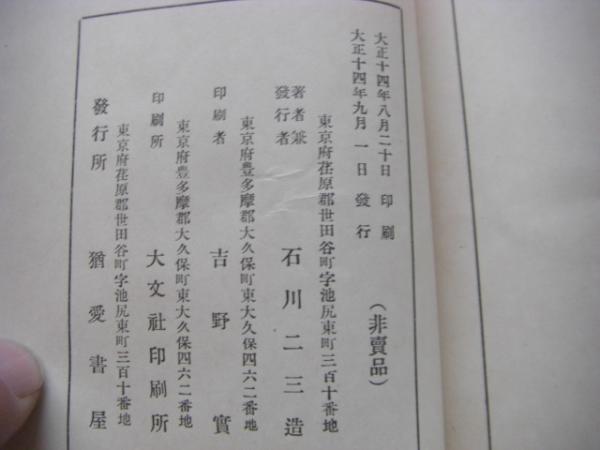 大正十四年八月二十日 印刷
大正十四年九月一日 發行
(非賣品)
東京府荏原郡世田谷町字池尻東町三百十番地
著者兼發行者 石川二三造
東京府豊多摩郡大久保町東大久保四六二番地
印刷者 吉野實
東京府豊多摩郡大久保町東大久保四六二番地
印刷所 大文社印刷所
東京府荏原郡世田谷町字池尻東町三百十番地
發行所 猶愛書屋